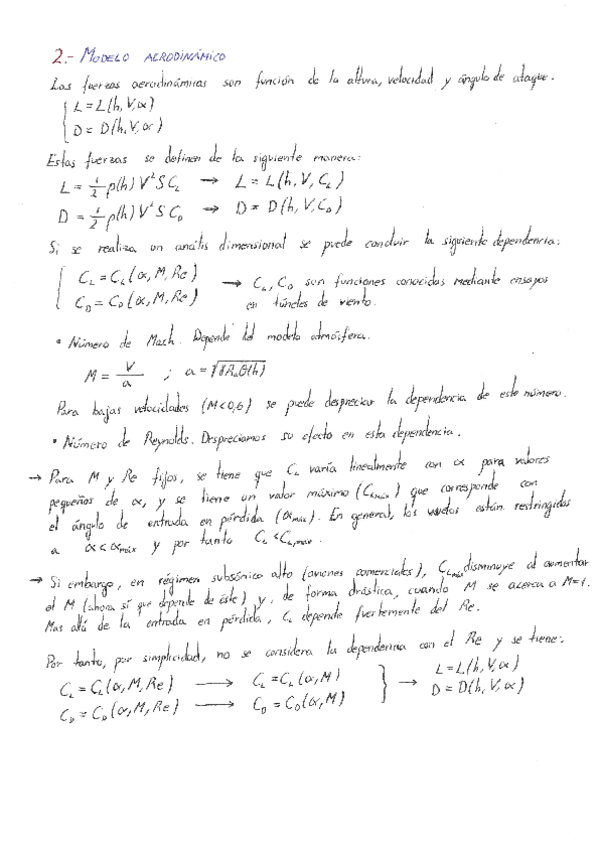 2.- MODELO AERODINÁMICO
Las fuerzas aerodinámicas son función de la altura, velocidad y ángulo de ataque.
L = L(h, V, α)
D = D(h, V, α)
Estas fuerzas se definen de la siguiente manera:
L = 1/2 ρ(h) V² S C_L → L = L(h, V, C_L)
D = 1/2 ρ(h) V² S C_D → D = D(h, V, C_D)
Si se realiza un anális dimensional se puede concluir la siguiente dependencia:
C_L = C_L(α, M, Re)
C_D = C_D(α, M, Re)
→ C_L, C_D son funciones conocidas mediante ensayos
en túneles de viento.
• Número de Mach. Depende del modelo atmósfera.
M = V/a ; a = √(γR_aΘ(h))
Para bajas velocidades (M<0,6) se puede despreciar la dependencia de este número.
• Número de Reynolds. Despreciamos su efecto en esta dependencia.
→ Para M y Re fijos, se tiene que C_L varía linealmente con α para valores
pequeños de α, y se tiene un valor máximo (C_Lmáx) que corresponde con
el ángulo de entrada en pérdida (α_máx). En general, los vuelos están restringidos
a α<α_máx y por tanto C_L<C_L,máx.
→ Si embargo, en régimen subsónico alto (aviones comerciales), C_Lmáx disminuye al aumentar
el M (ahora sí que depende de éste) y, de forma drástica, cuando M se acerca a M=1.
Mas allá de la entrada en pérdida, C_L depende fuertemente del Re.
Por tanto, por simplicidad, no se considera la dependencia con el Re y se tiene:
C_L = C_L(α, M, Re) → C_L = C_L(α, M)
C_D = C_D(α, M, Re) → C_D = C_D(α, M)
→ L = L(h, V, α)
D = D(h, V, α)